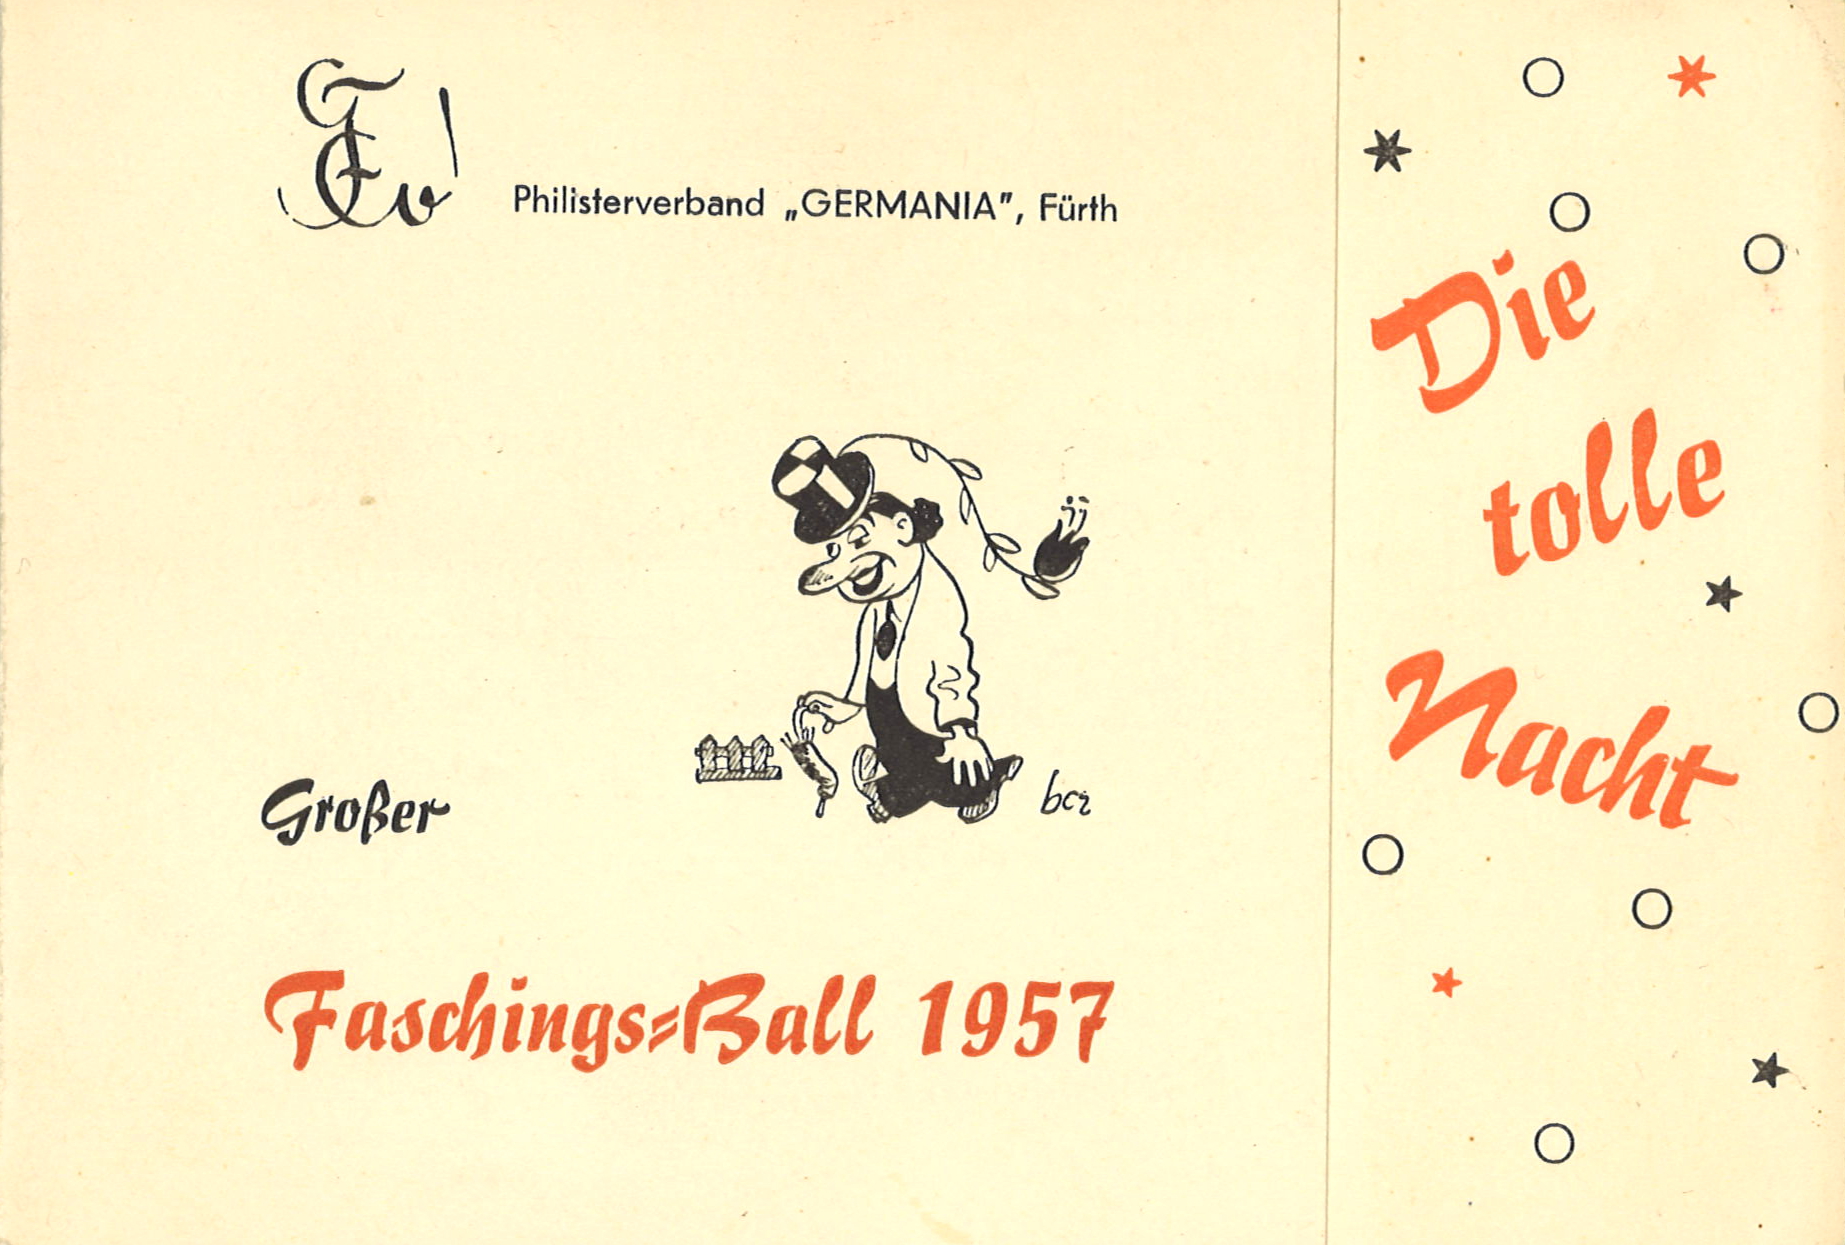 Philisterverband „GERMANIA”, Fürth
Großer
Faschings=Ball 1957
Die
tolle
Nacht